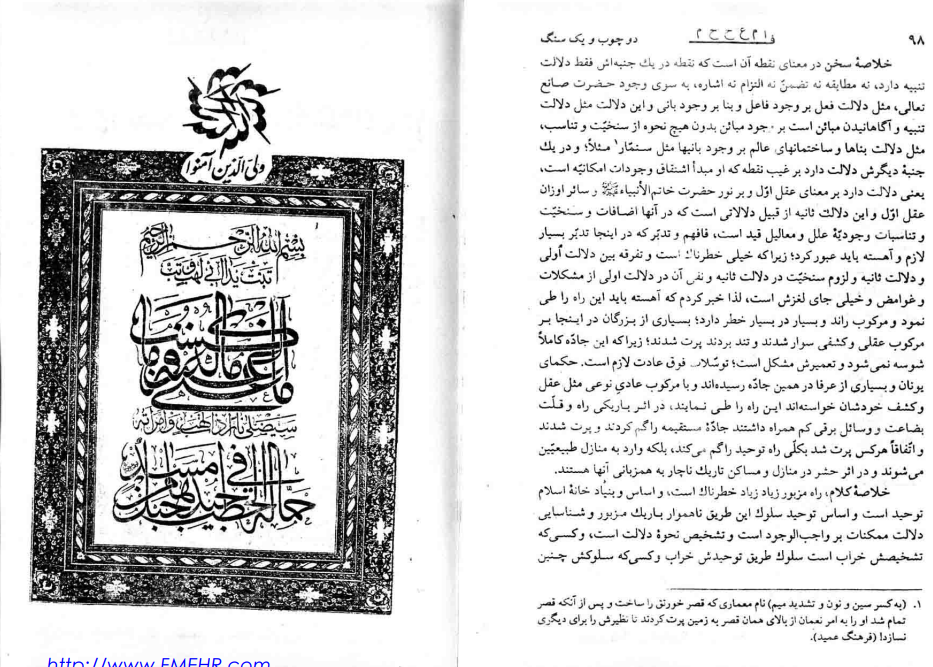 ۹۸
دو چوب و یک سنگ
خلاصهٔ سخن در معنای نقطه آن است که نقطه در یك جنبه‌اش فقط دلالت
تنبیه دارد، نه مطابقه نه تضمنّ نه التزام نه اشاره، به سوی وجود حضرت صانع
تعالی، مثل دلالت فعل بر وجود فاعل و بنا بر وجود بانی و این دلالت مثل دلالت
تنبیه و آگاهانیدن مبائن است بر وجود مبائن بدون هیچ نحوه از سنخیّت و تناسب،
مثل دلالت بناها و ساختمانهای عالم بر وجود بانیها مثل سنمّار۱ مثلاً؛ و در یك
جنبهٔ دیگرش دلالت دارد بر غیب نقطه که او مبدأ اشتقاق وجودات امکانیّه است،
یعنی دلالت دارد بر معنای عقل اوّل و بر نور حضرت خاتم‌الأنبیاء ﷺ و سائر اوزان
عقل اوّل و این دلالت ثانیه از قبیل دلالاتی است که در آنها اضافات و سنخیّت
و تناسبات وجودیّهٔ علل و معالیل قید است، فافهم و تدبّر که در اینجا تدبّر بسیار
لازم و آهسته باید عبور کرد؛ زیرا که خیلی خطرناك است و تفرقه بین دلالت اُولی
و دلالت ثانیه و لزوم سنخیّت در دلالت ثانیه و نفی آن در دلالت اولی از مشکلات
و غوامض و خیلی جای لغزش است، لذا خبر کردم که آهسته باید این راه را طی
نمود و مرکوب راند و بسیار در بسیار خطر دارد؛ بسیاری از بزرگان در اینجا بر
مرکوب عقلی و کشفی سوار شدند و تند بردند پرت شدند؛ زیرا که این جادّه کاملاً
شوسه نمی‌شود و تعمیرش مشکل است؛ توسّلات فوق عادت لازم است. حکمای
یونان و بسیاری از عرفا در همین جادّه رسیده‌اند و با مرکوب عادیِ نوعی مثل عقل
و کشف خودشان خواسته‌اند این راه را طی نمایند، در اثر باریکی راه و قلّت
بضاعت و وسائل برقی کم همراه داشتند جادّهٔ مستقیمه را گم کردند و پرت شدند
و اتّفاقاً هرکس پرت شد بکلّی راه توحید را گم می‌کند، بلکه وارد به منازل طبیعیّین
می‌شوند و در اثر حشر در منازل و مساکن تاریك ناچار به همزبانی آنها هستند.
خلاصهٔ کلام، راه مزبور زیاد زیاد خطرناك است، و اساس و بنیاد خانهٔ اسلام
توحید است و اساس توحید سلوك این طریق ناهموار باریك مزبور و شناسایی
دلالت ممکنات بر واجب‌الوجود است و تشخیص نحوهٔ دلالت است، وکسی‌که
تشخیصش خراب است سلوك طریق توحیدش خراب وکسی‌که سلوکش چنین
۱. (به کسر سین و نون و تشدید میم) نام معماری که قصر خورنق را ساخت و پس از آنکه قصر
تمام شد او را به امر نعمان از بالای همان قصر به زمین پرت کردند تا نظیرش را برای دیگری
نسازد! (فرهنگ عمید).
الله
ولیّ الّذین آمنوا
بسم الله الرحمن الرحیم
تبت یدا ابی لهب وتب
ما اغنی عنه ماله وما کسب
سیصلی نارا ذات لهب وامرأته
حمالة الحطب فی جیدها حبل من مسد
http://www.EMEHR.com